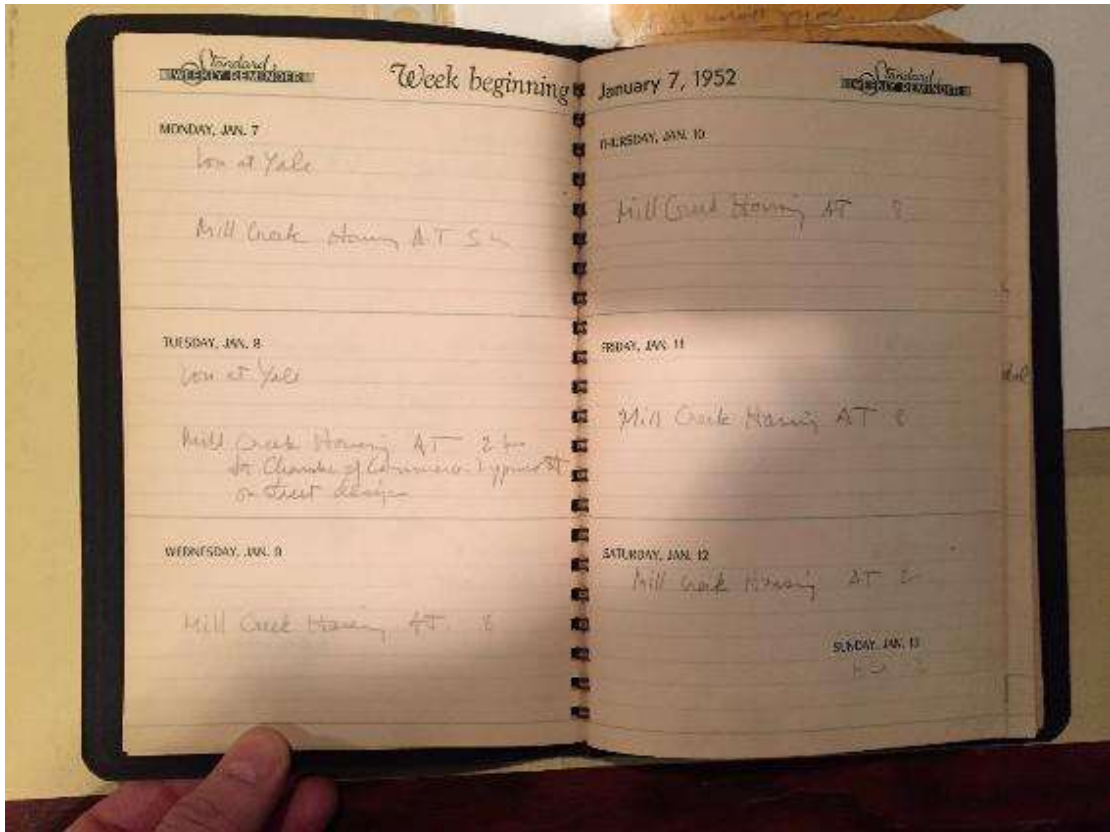 Standard
WEEKLY REMINDER
Week beginning
MONDAY, JAN. 7
Lou at Yale
Mill Creek Housing AT 5 h
TUESDAY, JAN. 8
Lou at Yale
Mill Creek Housing AT 2 h
Chamber of Commerce
on street design
WEDNESDAY, JAN. 9
Mill Creek Housing AT. 8
January 7, 1952
Standard
WEEKLY REMINDER
THURSDAY, JAN. 10
Mill Creek Housing AT 8
FRIDAY, JAN. 11
Mill Creek Housing AT 8
SATURDAY, JAN. 12
Mill Creek Housing AT 2
SUNDAY, JAN. 13